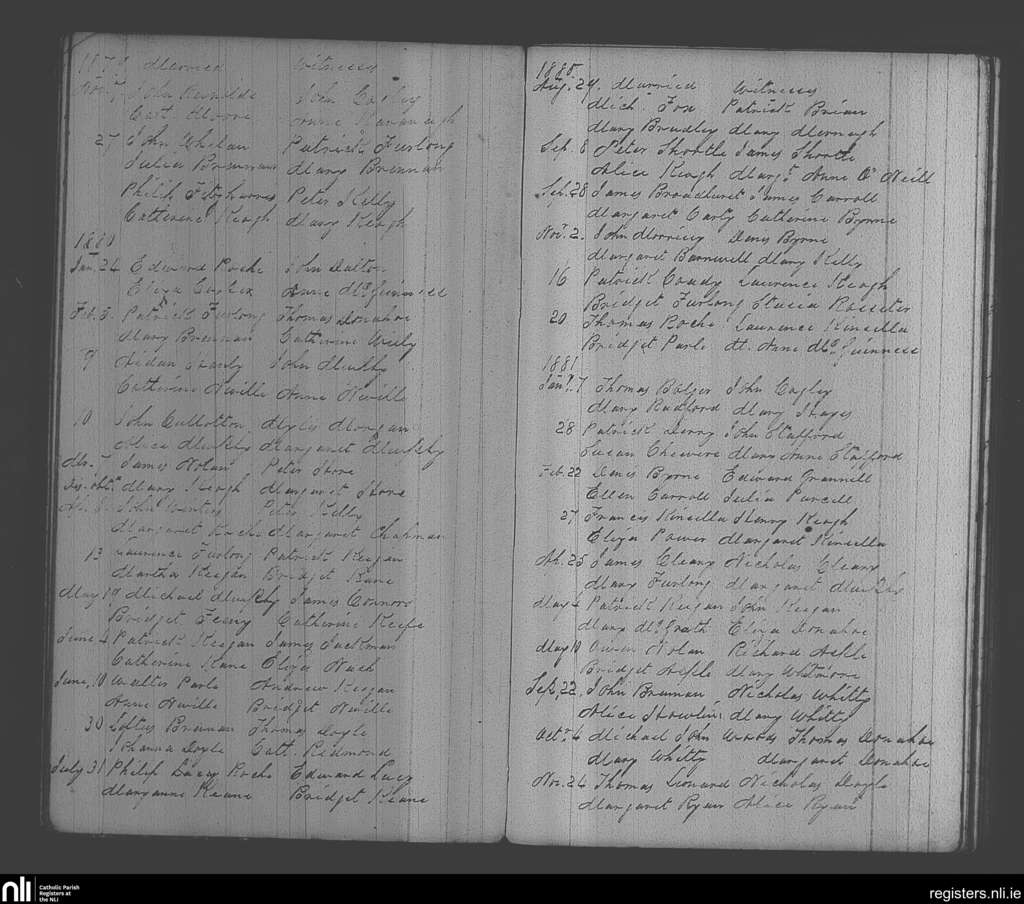 1879 Married Witnesses
Nov. 7 John Reynolds John Cogley
Cath. Moore Anne Kavanagh
27 John Whelan Patrick Furlong
Julia Brennan Mary Brennan
Philip Fitzharris Peter Kelly
Catherine Keogh Mary Keogh
1880
Jan. 26 Edward Roche John Dalton
Eliza Anne McGuinness
Feb. 3. Patrick Furlong Thomas Donahoe
Mary Brennan Catherine
9 Aidan John Murphy
Catherine Neville Anne Neville
10 John Cullotton Myles Morgan
Alice Murphy Margaret Murphy
James Nolan Peter Shore
Mary Keogh Margaret Shore
John Peter Kelly
Margaret Roche Margaret Chapman
13 Laurence Furlong Patrick Keegan
Martha Keegan Bridget Kane
May 19 Michael Murphy James Connors
Bridget Catherine Keefe
June 4 Patrick Keegan James Suckman
Catherine Kane Eliza Nash
June, 10 Walter Parle Andrew Keegan
Anne Neville Bridget Neville
30 Loftus Brennan Thomas Doyle
Johanna Doyle Cath. Redmond
July 31 Philip Lacy Roche Edward Lacy
Maryanne Keane Bridget Keane
1880.
Aug. 29. Married Witnesses
Mich. Fox Patrick Brien
Mary Bradley Mary Murnagh
Sep. 8 Peter Shortle James Shortle
Alice Keogh Margt. Anne O'Neill
Sep. 28 James Broadhurst James Carroll
Margaret Carty Catherine Byrne
Nov. 2. John Morrissy Denis Byrne
Margaret Barnwell Mary Kelly
16 Patrick Coady Laurence Keogh
Bridget Furlong Stasia Rosseter
20 Thomas Roche Laurence Kinsella
Bridget Parle M. Anne McGuinness
1881
Jany. 7 Thomas Bolger John Cogley
Mary Radford Mary Hayes
28 Patrick Derry John Stafford
Susan Cheevers Mary Anne Stafford
Feb. 22 Denis Byrne Edward Grannell
Ellen Carroll Julia Purcell
27 Francis Kinsella Henry Keogh
Eliza Power Margaret Kinsella
Ap. 25 James Cleary Nicholas Cleary
Mary Furlong Margaret Murphy
May 4 Patrick Keegan John Keegan
Mary McGrath Eliza Donahoe
May 10 Owen Nolan Richard Asple
Bridget Asple Mary Whitmore
Sep. 22. John Brennan Nicholas Whitty
Alice Howlin Mary Whitty
Oct. 4 Michael John Woods Thomas Donahoe
Mary Whitty Margaret Donahoe
Nov. 24 Thomas Leonard Nicholas Doyle
Margaret Ryan Alice Ryan
nli Catholic Parish
Registers at
the NLI
registers.nli.ie